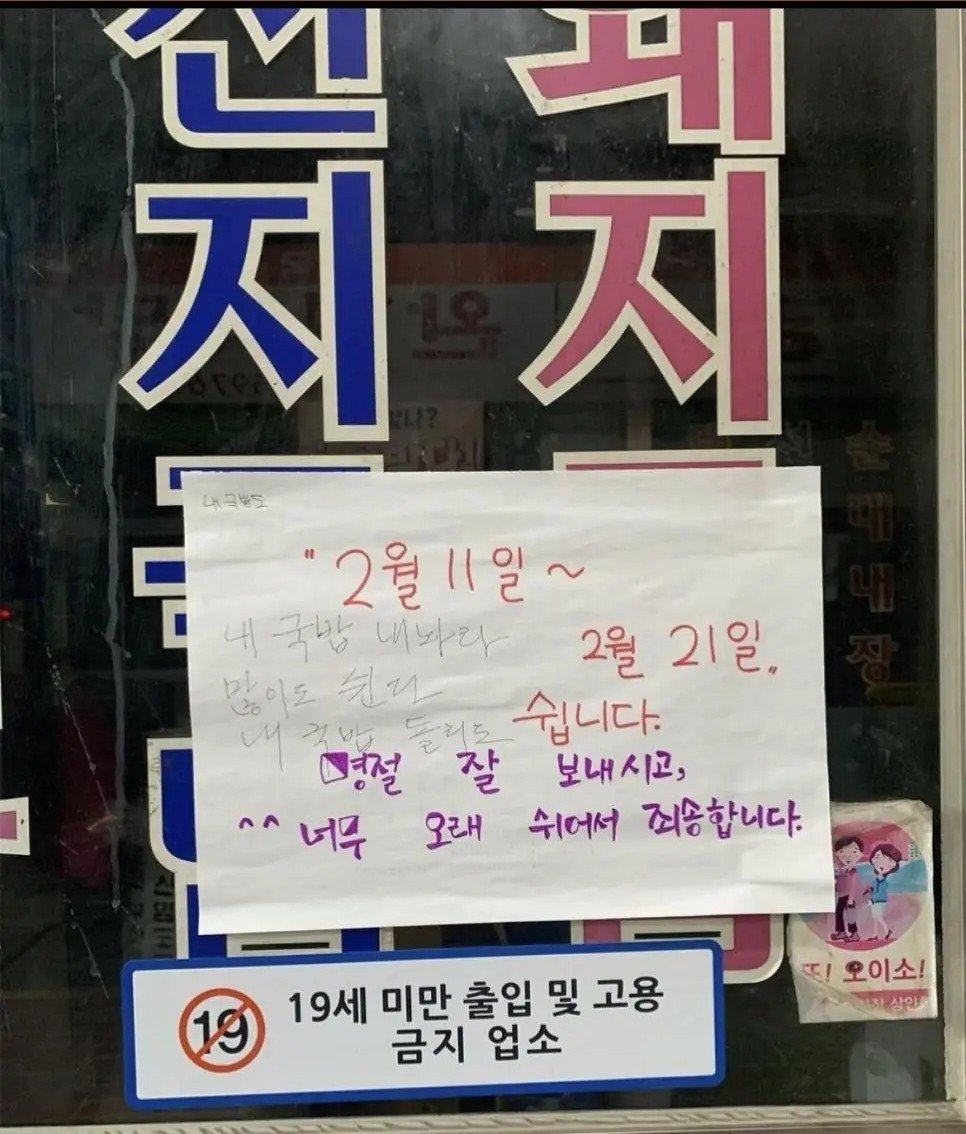 전
지
돼
지
내 국밥도
"2월 11일~
2월 21일"
쉽니다.
내 국밥 내놔라
많이도 쉰다
내 국밥 돌리도
명절 잘 보내시고,
^^ 너무 오래 쉬어서 죄송합니다.
순대내장
또! 오이소!
19
19세 미만 출입 및 고용
금지 업소